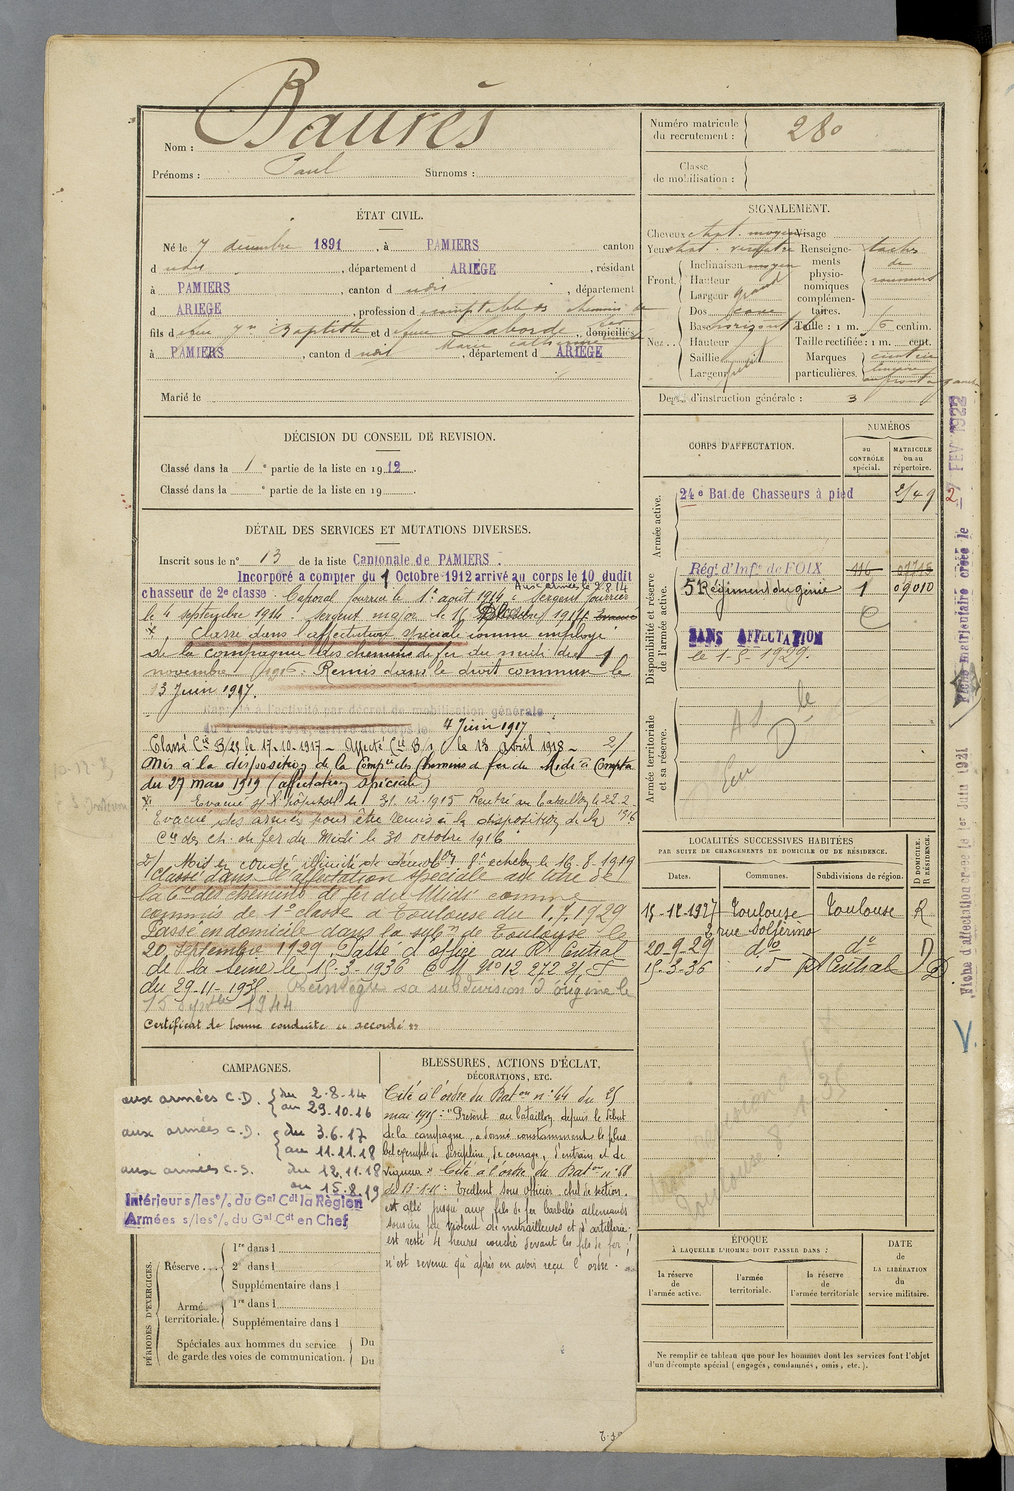 Nom : Baurès
Prénoms : Paul Surnoms :
Numéro matricule du recrutement : 280
Classe de mobilisation :
ÉTAT CIVIL.
Né le 7 décembre 1891, à PAMIERS canton
d udit, département d ARIEGE, résidant
à PAMIERS, canton d udit, département
d ARIEGE, profession d comptable chemins de
fils d Jn Baptiste et d Laborde, domiciliés
Marie
à PAMIERS, canton d udit, département d ARIEGE
Marié le
DÉCISION DU CONSEIL DE REVISION.
Classé dans la 1e partie de la liste en 1912.
Classé dans la e partie de la liste en 19 .
SIGNALEMENT.
Cheveux chat. moyen Visage
Yeux chat. verdâtre Renseignements physionomiques complémentaires. taches de rousseurs
Front. Inclinaison moyen
Hauteur
Largeur grand
Nez. Dos cave
Base horizontal Taille : 1 m. 76 centim.
Hauteur Taille rectifiée : 1 m. cent.
Saillie
Largeur petit Marques particulières. cicatrice
front
Degré d'instruction générale : 3
DÉTAIL DES SERVICES ET MUTATIONS DIVERSES.
Inscrit sous le n° 13 de la liste Cantonale de PAMIERS.
Incorporé à compter du 1 Octobre 1912 arrivé au corps le 10 dudit
Aux armées le 2.8.14
chasseur de 2e classe. Caporal fourrier le 1er août 1914. Sergent fourrier
le 4 septembre 1914. Sergent major le 11
Classé dans l'affectation spéciale comme employé
de la Compagnie des chemins de fer du midi du 1
novembre 1916. Remis dans le droit commun le
13 Juin 1917.
Rappelé à l'activité par décret de mobilisation générale
du 1er Août 1914, arrivé au corps le 4 Juin 1917
Classé Cie 3/25 le 17.10.1917 – Affecté Cie 8/1 le 13 avril 1918 – 2/
Mis à la disposition de la Compie des Chemins de fer du Midi à Compter
du 27 mars 1919 (affectation spéciale)
Evacué s/ l'hôpital le 31.12.1915 Rentré au bataillon le 22.2.1916
Evacué des armées pour être remis à la disposition de la
Cie des ch. de fer du Midi le 30 octobre 1916
2/ Mis en congé illimité de démobon 8e echelon le 16.8.1919
Classé dans l'affectation spéciale au titre de
la Cie des chemins de fer du Midi comme
commis de 1e classe à Toulouse du 1.7.1929
Passé en domicile dans la sybon de Toulouse le
20 Septembre 1929. Passé d'office au Rt Central
de la Seine le 15-3-1936 C M No 12 272
du 29-11-1935. Réintégré sa subdivision d'origine le
15 1944
Certificat de bonne conduite accordé
CORPS D'AFFECTATION.
NUMÉROS
au CONTRÔLE spécial.
MATRICULE ou au répertoire.
Armée active.
24e Bat. de Chasseurs à pied 2149
Disponibilité et réserve de l'armée active.
Rég. d'Infie de FOIX 416
5 Régiment du génie 1 09010
SANS AFFECTATION
le 1-5-1929.
Armée territoriale et sa réserve.
LOCALITÉS SUCCESSIVES HABITÉES
PAR SUITE DE CHANGEMENTS DE DOMICILE OU DE RÉSIDENCE.
Dates. Communes. Subdivisions de région. D DOMICILE. R RÉSIDENCE.
15-12-1927 Toulouse Toulouse R
2 rue Solférino
20-9-29 do do D
15-3-36 id Rt Central D
CAMPAGNES.
aux armées C.D. du 2.8.14
au 29.10.16
aux armées C.D. du 3.6.17
au 11.11.18
aux armées C.S. du 12.11.18
au 15.8.19
Intérieur s/les o/. du Gal Cdt la Région
Armées s/les o/. du Gal Cdt en Chef
BLESSURES, ACTIONS D'ÉCLAT,
DÉCORATIONS, ETC.
Cité à l'ordre du Baton n° 44 du 25
mai 1915 : "Présent au bataillon depuis le début
de la campagne, a donné constamment le plus
bel exemple de discipline, de courage, d'entrain et de
vigueur." Cité à l'ordre du Baton n° 68
: Excellent sous officier, chef de section,
est allé jusqu'aux fils de fer barbelés allemands
sous un feu violent de mitrailleuses et d'artillerie
est resté 4 heures couché devant les fils de fer,
n'est revenu qu'après en avoir reçu l'ordre.
PÉRIODES D'EXERCICES.
Réserve. . . . 1re dans l
2e dans l
Supplémentaire dans l
Armée territoriale. 1re dans l
Supplémentaire dans l
Spéciales aux hommes du service de garde des voies de communication. Du
Du
ÉPOQUE
À LAQUELLE L'HOMME DOIT PASSER DANS :
la réserve de l'armée active.
l'armée territoriale.
la réserve de l'armée territoriale
DATE de LA LIBÉRATION du service militaire.
Ne remplir ce tableau que pour les hommes dont les services font l'objet
d'un décompte spécial (engagés, condamnés, omis, etc.).
Fiche d'affectation créée le 1er Juin 1921
FEV 1922
V.